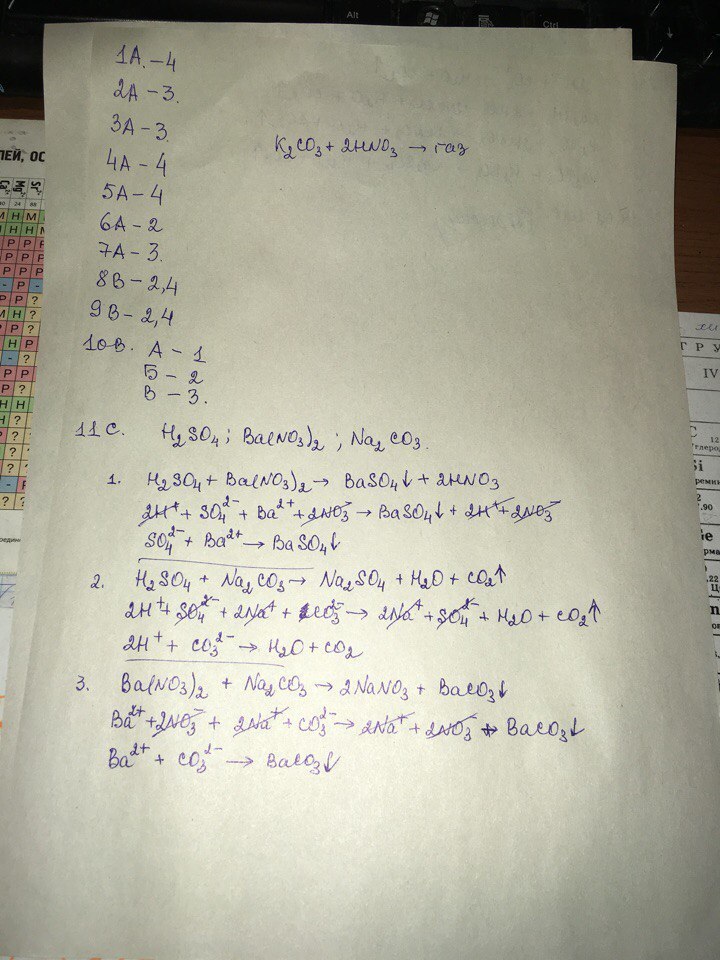 Alt
Ctrl
1А. – 4
2А – 3.
3А – 3.
K₂CO₃ + 2HNO₃ → газ
4А – 4
5А – 4
6А – 2
7А – 3.
8В – 2,4
9В – 2,4
10В. А – 1
Б – 2
В – 3.
11С. H₂SO₄ ; Ba(NO₃)₂ ; Na₂CO₃.
1. H₂SO₄ + Ba(NO₃)₂ → BaSO₄↓ + 2HNO₃
2H⁺ + SO₄²⁻ + Ba²⁺ + 2NO₃⁻ → BaSO₄↓ + 2H⁺ + 2NO₃⁻
SO₄²⁻ + Ba²⁺ → BaSO₄↓
2. H₂SO₄ + Na₂CO₃ → Na₂SO₄ + H₂O + CO₂↑
2H⁺ + SO₄²⁻ + 2Na⁺ + CO₃²⁻ → 2Na⁺ + SO₄²⁻ + H₂O + CO₂↑
2H⁺ + CO₃²⁻ → H₂O + CO₂
3. Ba(NO₃)₂ + Na₂CO₃ → 2NaNO₃ + BaCO₃↓
Ba²⁺ + 2NO₃⁻ + 2Na⁺ + CO₃²⁻ → 2Na⁺ + 2NO₃⁻ + BaCO₃↓
Ba²⁺ + CO₃²⁻ → BaCO₃↓
ЛЕЙ, ОС
Г Р У
IV